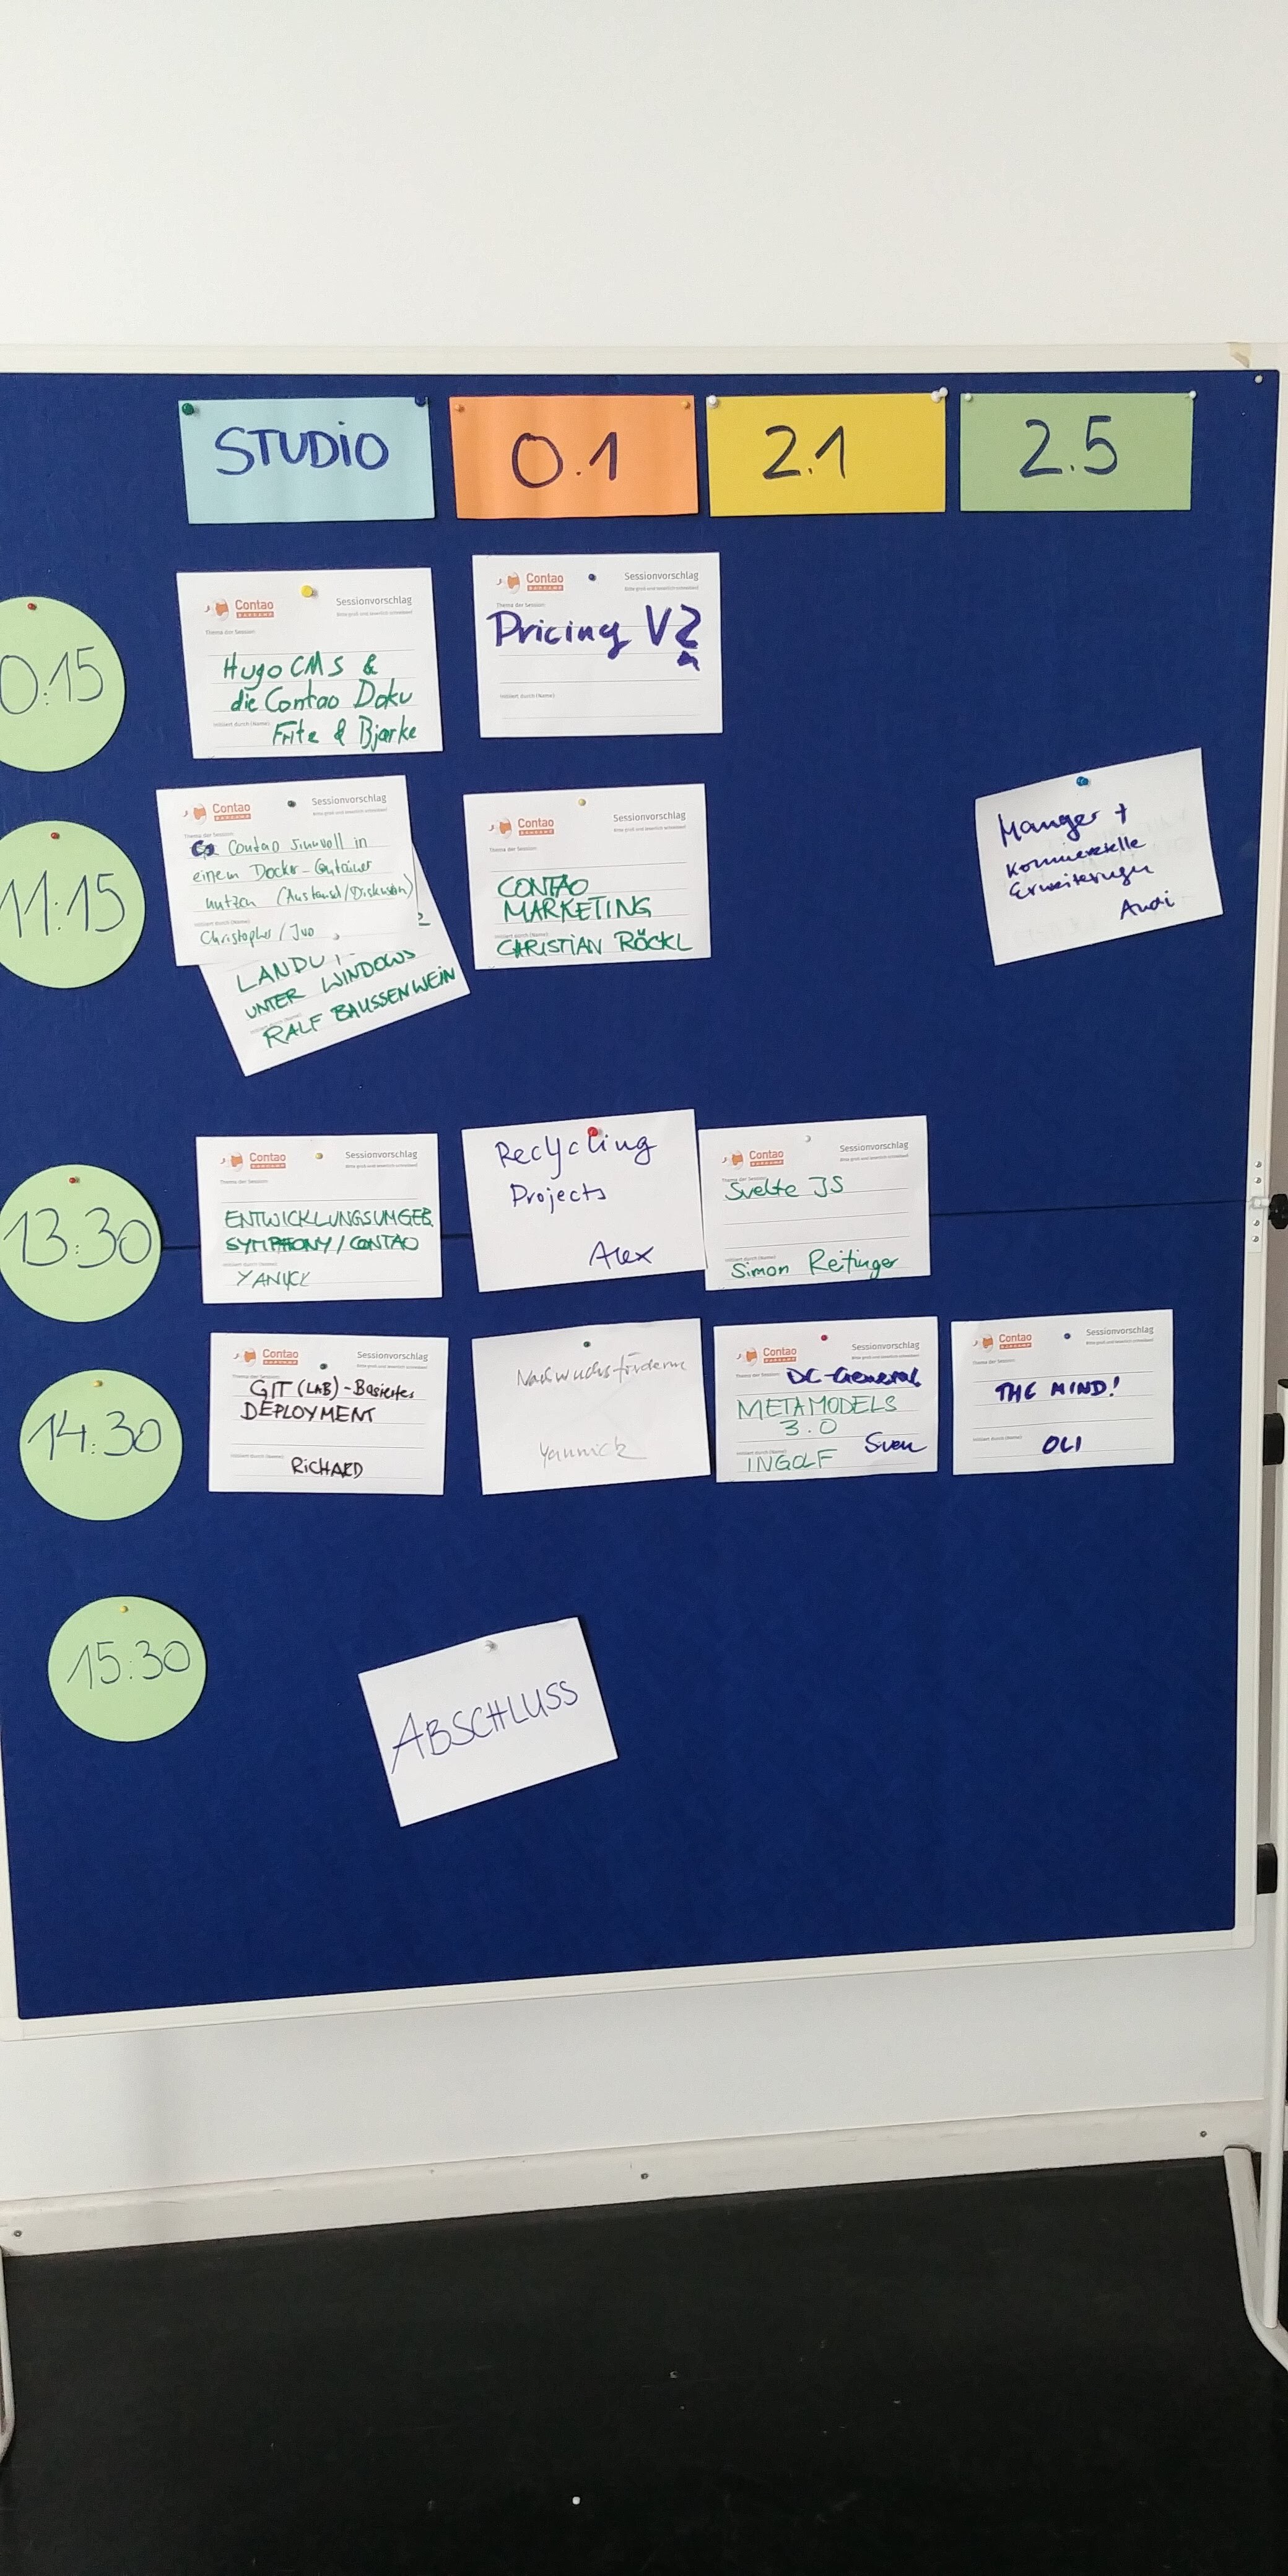 STUDIO
0.1
2.1
2.5
0:15
Contao
Sessionvorschlag
Bitte groß und leserlich schreiben!
Thema der Session:
Hugo CMS &
die Contao Doku
Initiiert durch (Name)
Fritz & Bjarke
Contao
Sessionvorschlag
Bitte groß und leserlich schreiben!
Thema der Session:
Pricing V2
Initiiert durch (Name)
11:15
Contao
Sessionvorschlag
Bitte groß und leserlich schreiben!
Thema der Session:
Contao sinnvoll in
einem Docker-Container
nutzen (Austausch/Diskussion)
Initiiert durch (Name)
Christopher / Ivo
UNTER WINDOWS
RALF BAUSSENWEIN
Contao
Sessionvorschlag
Bitte groß und leserlich schreiben!
Thema der Session:
CONTAO
MARKETING
Initiiert durch (Name)
CHRISTIAN RÖCKL
Manger +
Kommerzielle
Erweiterungen
Andi
13:30
Contao
Sessionvorschlag
Bitte groß und leserlich schreiben!
Thema der Session:
ENTWICKLUNGSUMGEB.
SYMPHONY / CONTAO
Initiiert durch (Name)
YANICK
Recycling
Projects
Alex
Contao
Sessionvorschlag
Bitte groß und leserlich schreiben!
Thema der Session:
Svelte JS
Initiiert durch (Name)
Simon Reitinger
14:30
Contao
Sessionvorschlag
Bitte groß und leserlich schreiben!
Thema der Session:
GIT (LAB) - Basiertes
DEPLOYMENT
Initiiert durch (Name)
RICHARD
Nachwuchs fördern
Yannick
Contao
Sessionvorschlag
Bitte groß und leserlich schreiben!
Thema der Session:
DC-General
METAMODELS
3.0
Initiiert durch (Name)
Sven
INGOLF
Contao
Sessionvorschlag
Bitte groß und leserlich schreiben!
Thema der Session:
THE MIND!
Initiiert durch (Name)
OLI
15:30
ABSCHLUSS